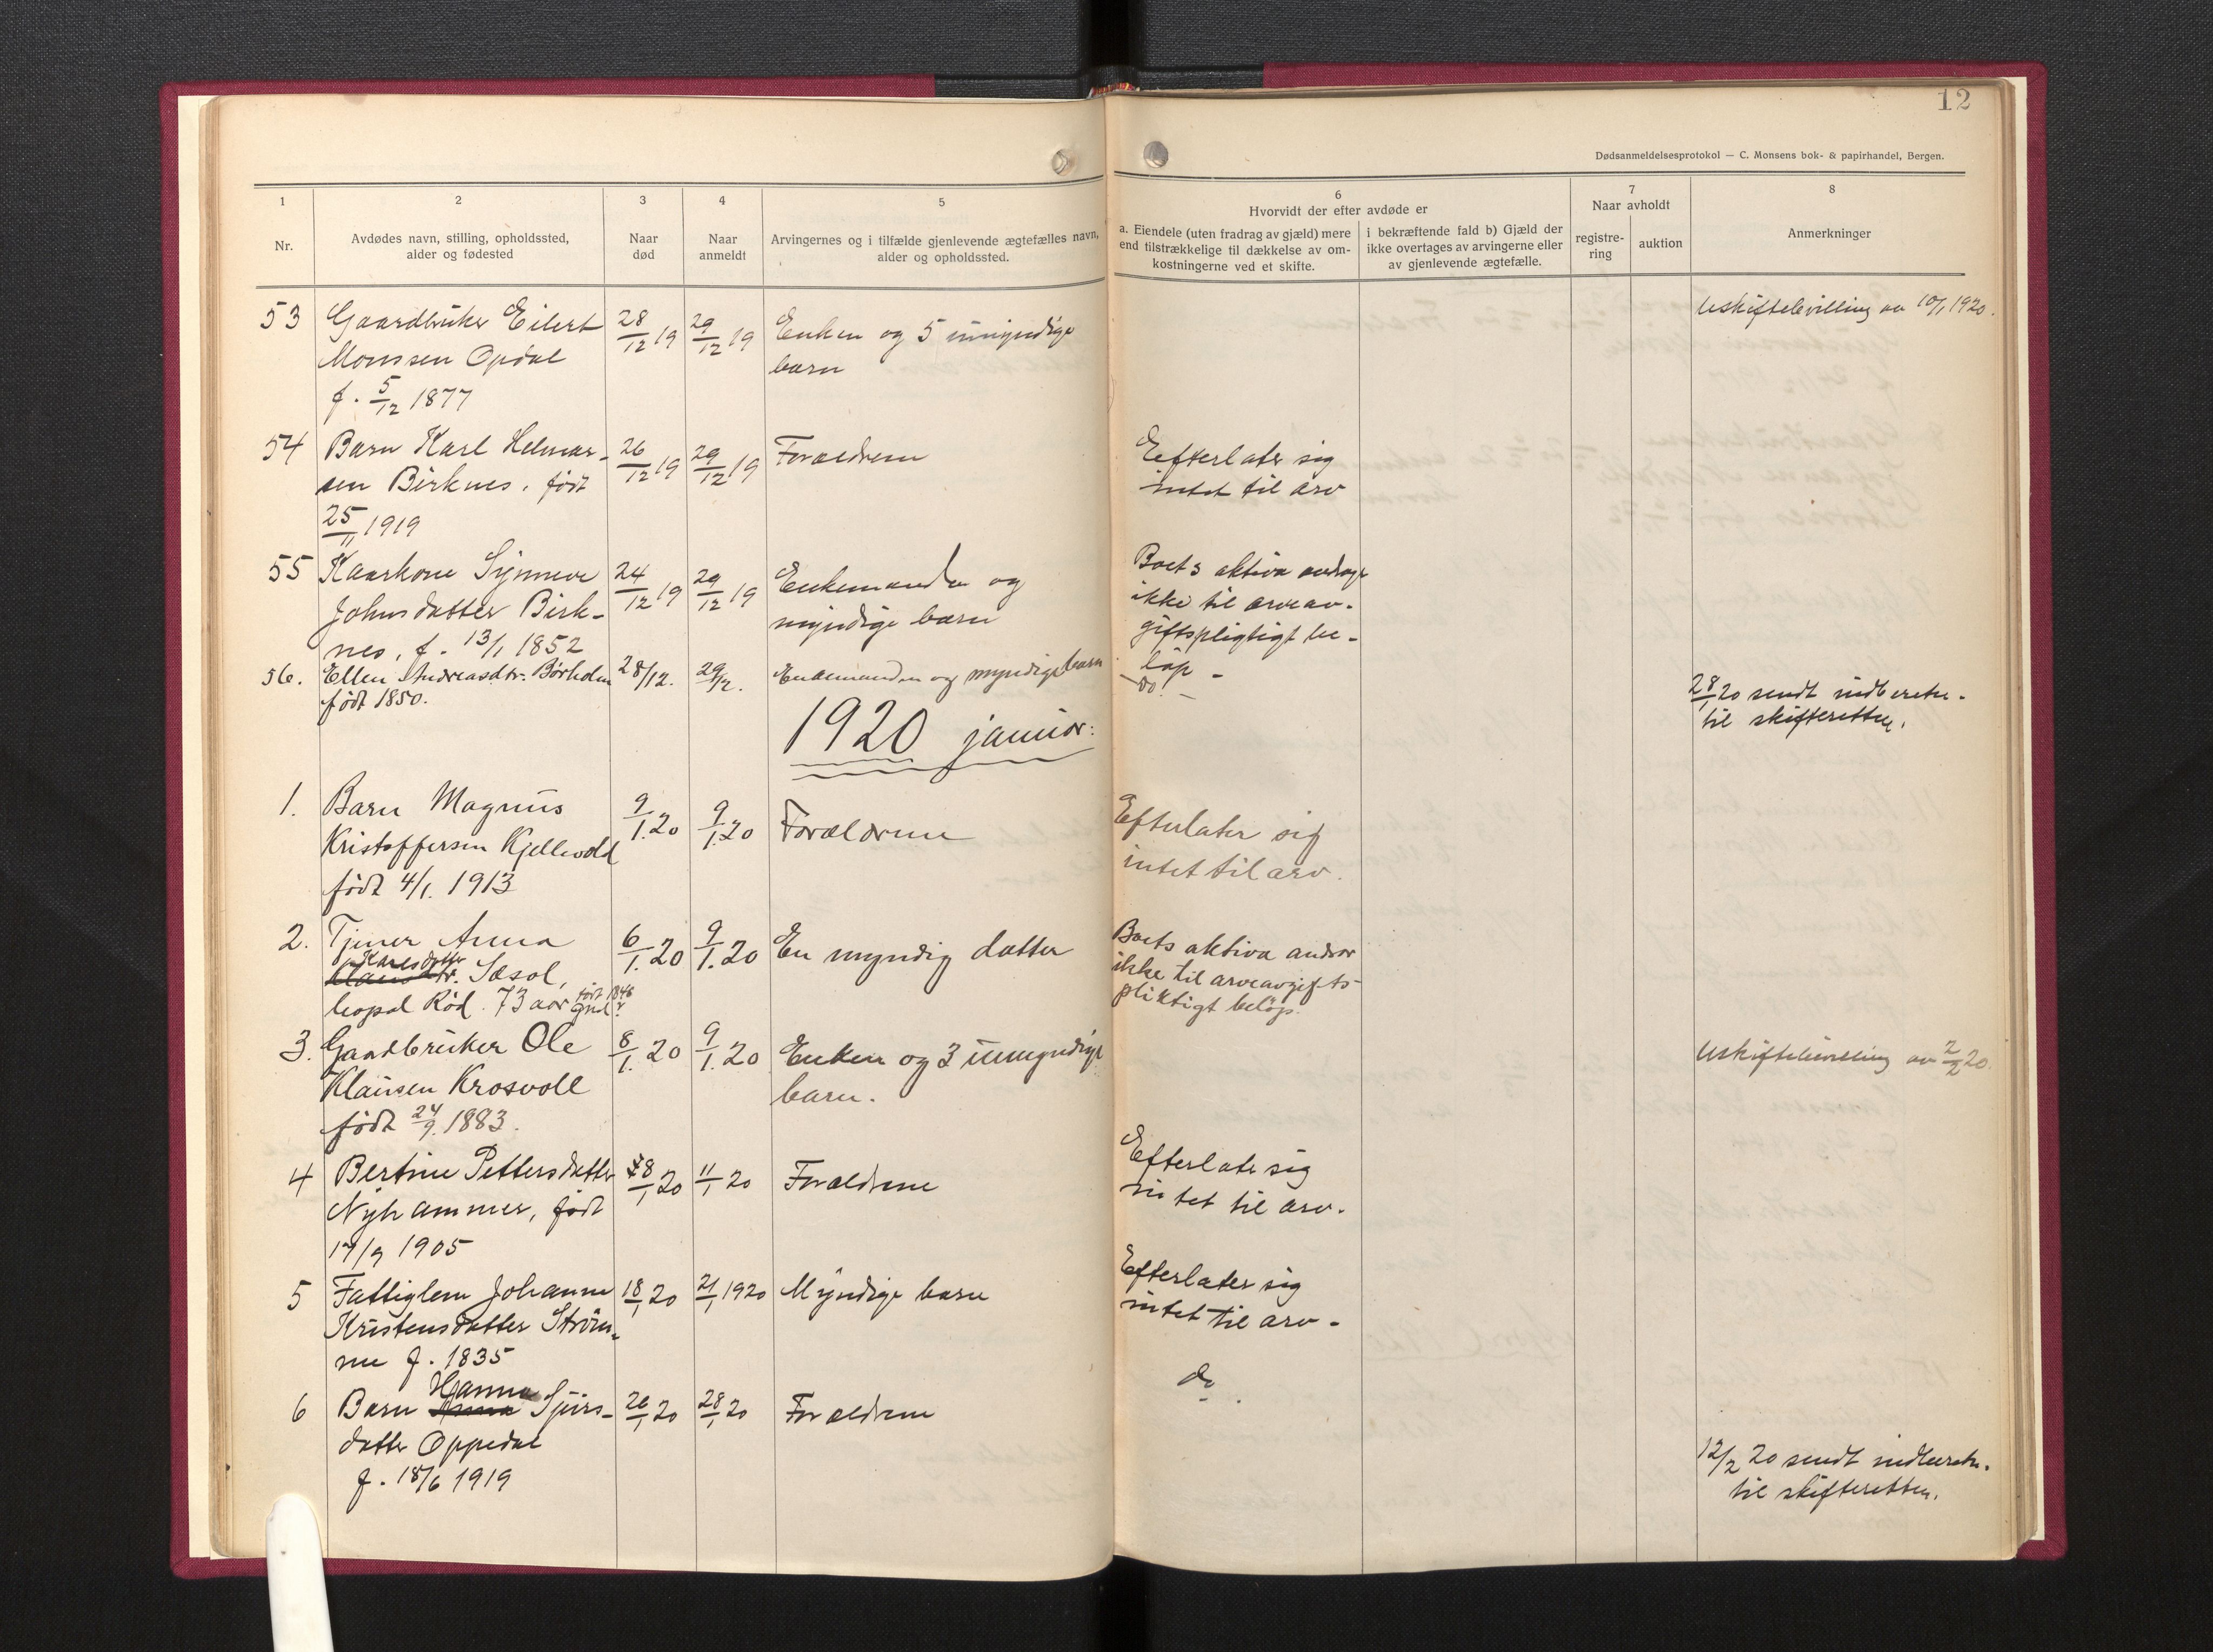 12
Dødsanmeldelsesprotokol — C. Monsens bok- & papirhandel, Bergen.
1
2
3
4
5
6
7
8
Nr.
Avdødes navn, stilling, opholdssted,
alder og fødested
Naar
død
Naar
anmeldt
Arvingernes og i tilfælde gjenlevende ægtefælles navn,
alder og opholdssted.
Hvorvidt der efter avdøde er
a. Eiendele (uten fradrag av gjæld) mere
end tilstrækkelige til dækkelse av om-
kostningerne ved et skifte.
i bekræftende fald b) Gjæld der
ikke overtages av arvingerne eller
av gjenlevende ægtefælle.
Naar avholdt
registre-
ring
auktion
Anmerkninger
53 Gaardbruker Eilert 28/12 19 29/12 19 Enken og 5 umyndige Uskiftebevilling av 10/1 1920.
Monssen Opdal barn
f. 5/12 1877
54 Barn Karl Helmer- 26/12 19 29/12 19 Forældrene Efterlater sig
sen Birknes, født intet til arv
25/11 1919
55 Kaarkone Synneve 24/12 19 29/12 19 Enkemanden og Boets aktiva andrager
Johnsdatter Birk- myndige barn ikke til arveav-
nes, f. 13/1 1852 giftspligtigt be-
løp -
56. Ellen Andreasdtr. Børholm 28/12. 29/12. Enkemanden og myndige barn - do. -
født 1850.
28/1 20 sendt indberetn.
til skifteretten.
1920 januar:
1. Barn Magnus 9/1. 20 9/1. 20 Forældrene Efterlater sig
Kristoffersen Kjellevold intet til arv.
født 4/1. 1913
2. Tjener Anna 6/1. 20 9/1. 20 En myndig datter Boets aktiva andrar
Karlsdatter
Sæsol, ikke til arveavgifts-
bopæl Rød. 73 aar født 1846 pliktigt beløp.
3. Gaardbruker Ole 8/1. 20 9/1. 20 Enken og 3 umyndige Uskiftebevilling av 2/2 20.
Klausen Krosvoll barn.
født 24/9. 1883.
4 Bertine Pettersdatter 8/1 20 11/1 20 Forældrene Efterlate sig
Nyhammer, født intet til arv.
17/9 1905
5 Fattiglem Johanne 18/1 20 21/1 1920 Myndige barn Efterlater sig
Kristensdatter Strøm- intet til arv -
me f. 1835
6 Barn Hanna Sjurs- 26/1 20 28/1 20 Forældrene do.
datter Oppedal
f. 18/6 1919
12/2 20 sendt indberetn.
til skifteretten.